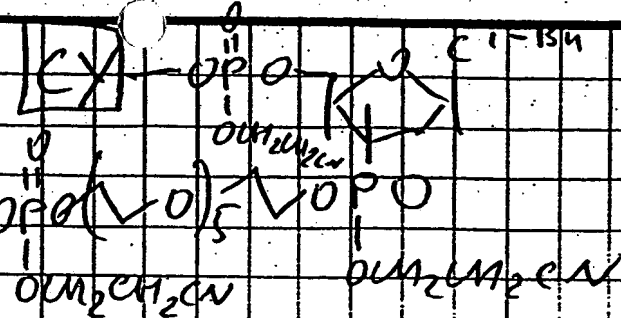 O O C i-Bu
CY OP O
OCH2CH2CN
O
OPO( O)5 O P O
OCH2CH2CN OCH2CH2CN